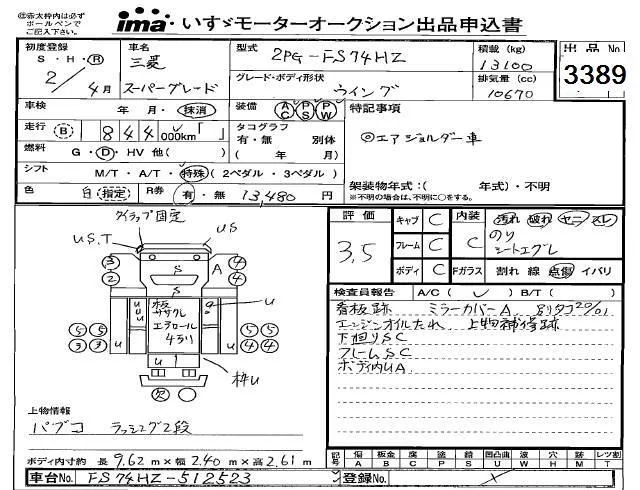 ㊟赤太枠内は必ず
ボールペンで
ご記入下さい。
ima いすゞモーターオークション出品申込書
初度登録 S・H・Ⓡ 2/4月
車名 三菱 スーパーグレード
型式 2PG-FS74HZ
グレード・ボディ形状 ウイング
積載(kg) 13100
排気量(cc) 10670
出品No 3389
車検 年・月・抹消
装備 AC PS PW
特記事項
◎エアショルダー車
走行 (B) 844,000km「 」
タコグラフ 有・無 別体 ( 年 月)
燃料 G・Ⓓ・HV 他( )
シフト M/T・A/T・特殊(2ペダル・3ペダル)
架装物年式:( 年式)・不明
※不明の場合は、不明に○をする。
色 白(指定) R券 有・無 13,480円
タイラップ固定
US.T
US
3 2 S S A 4 4
板 ササクレ エアロール 4ヨリ
U
5 5 3 3
5 5 4 4
枠U
欠
評価 3.5
キャブ C
フレーム C
ボディ C
内装 C
汚れ 破れ ヤニ スレ
のり
シートエグレ
Fガラス 割れ 線 点傷 イバリ
検査員報告 A/C( ✓ ) B/T( )
看板跡 ミラーカバーA 別タコ20/01
エンジンオイルたれ 上物補修跡
下廻りSC
フレームSC
ボディ内UA
上物情報
パブコ ラッシング2段
ボディ内寸約 長9.62m×幅2.40m×高2.61m
記号 傷 板金 腐 塗 錆 凹凸曲 波 穴 跡 レンズ割
A B C P S U W H M T
車台No. FS74HZ-512523
登録No.